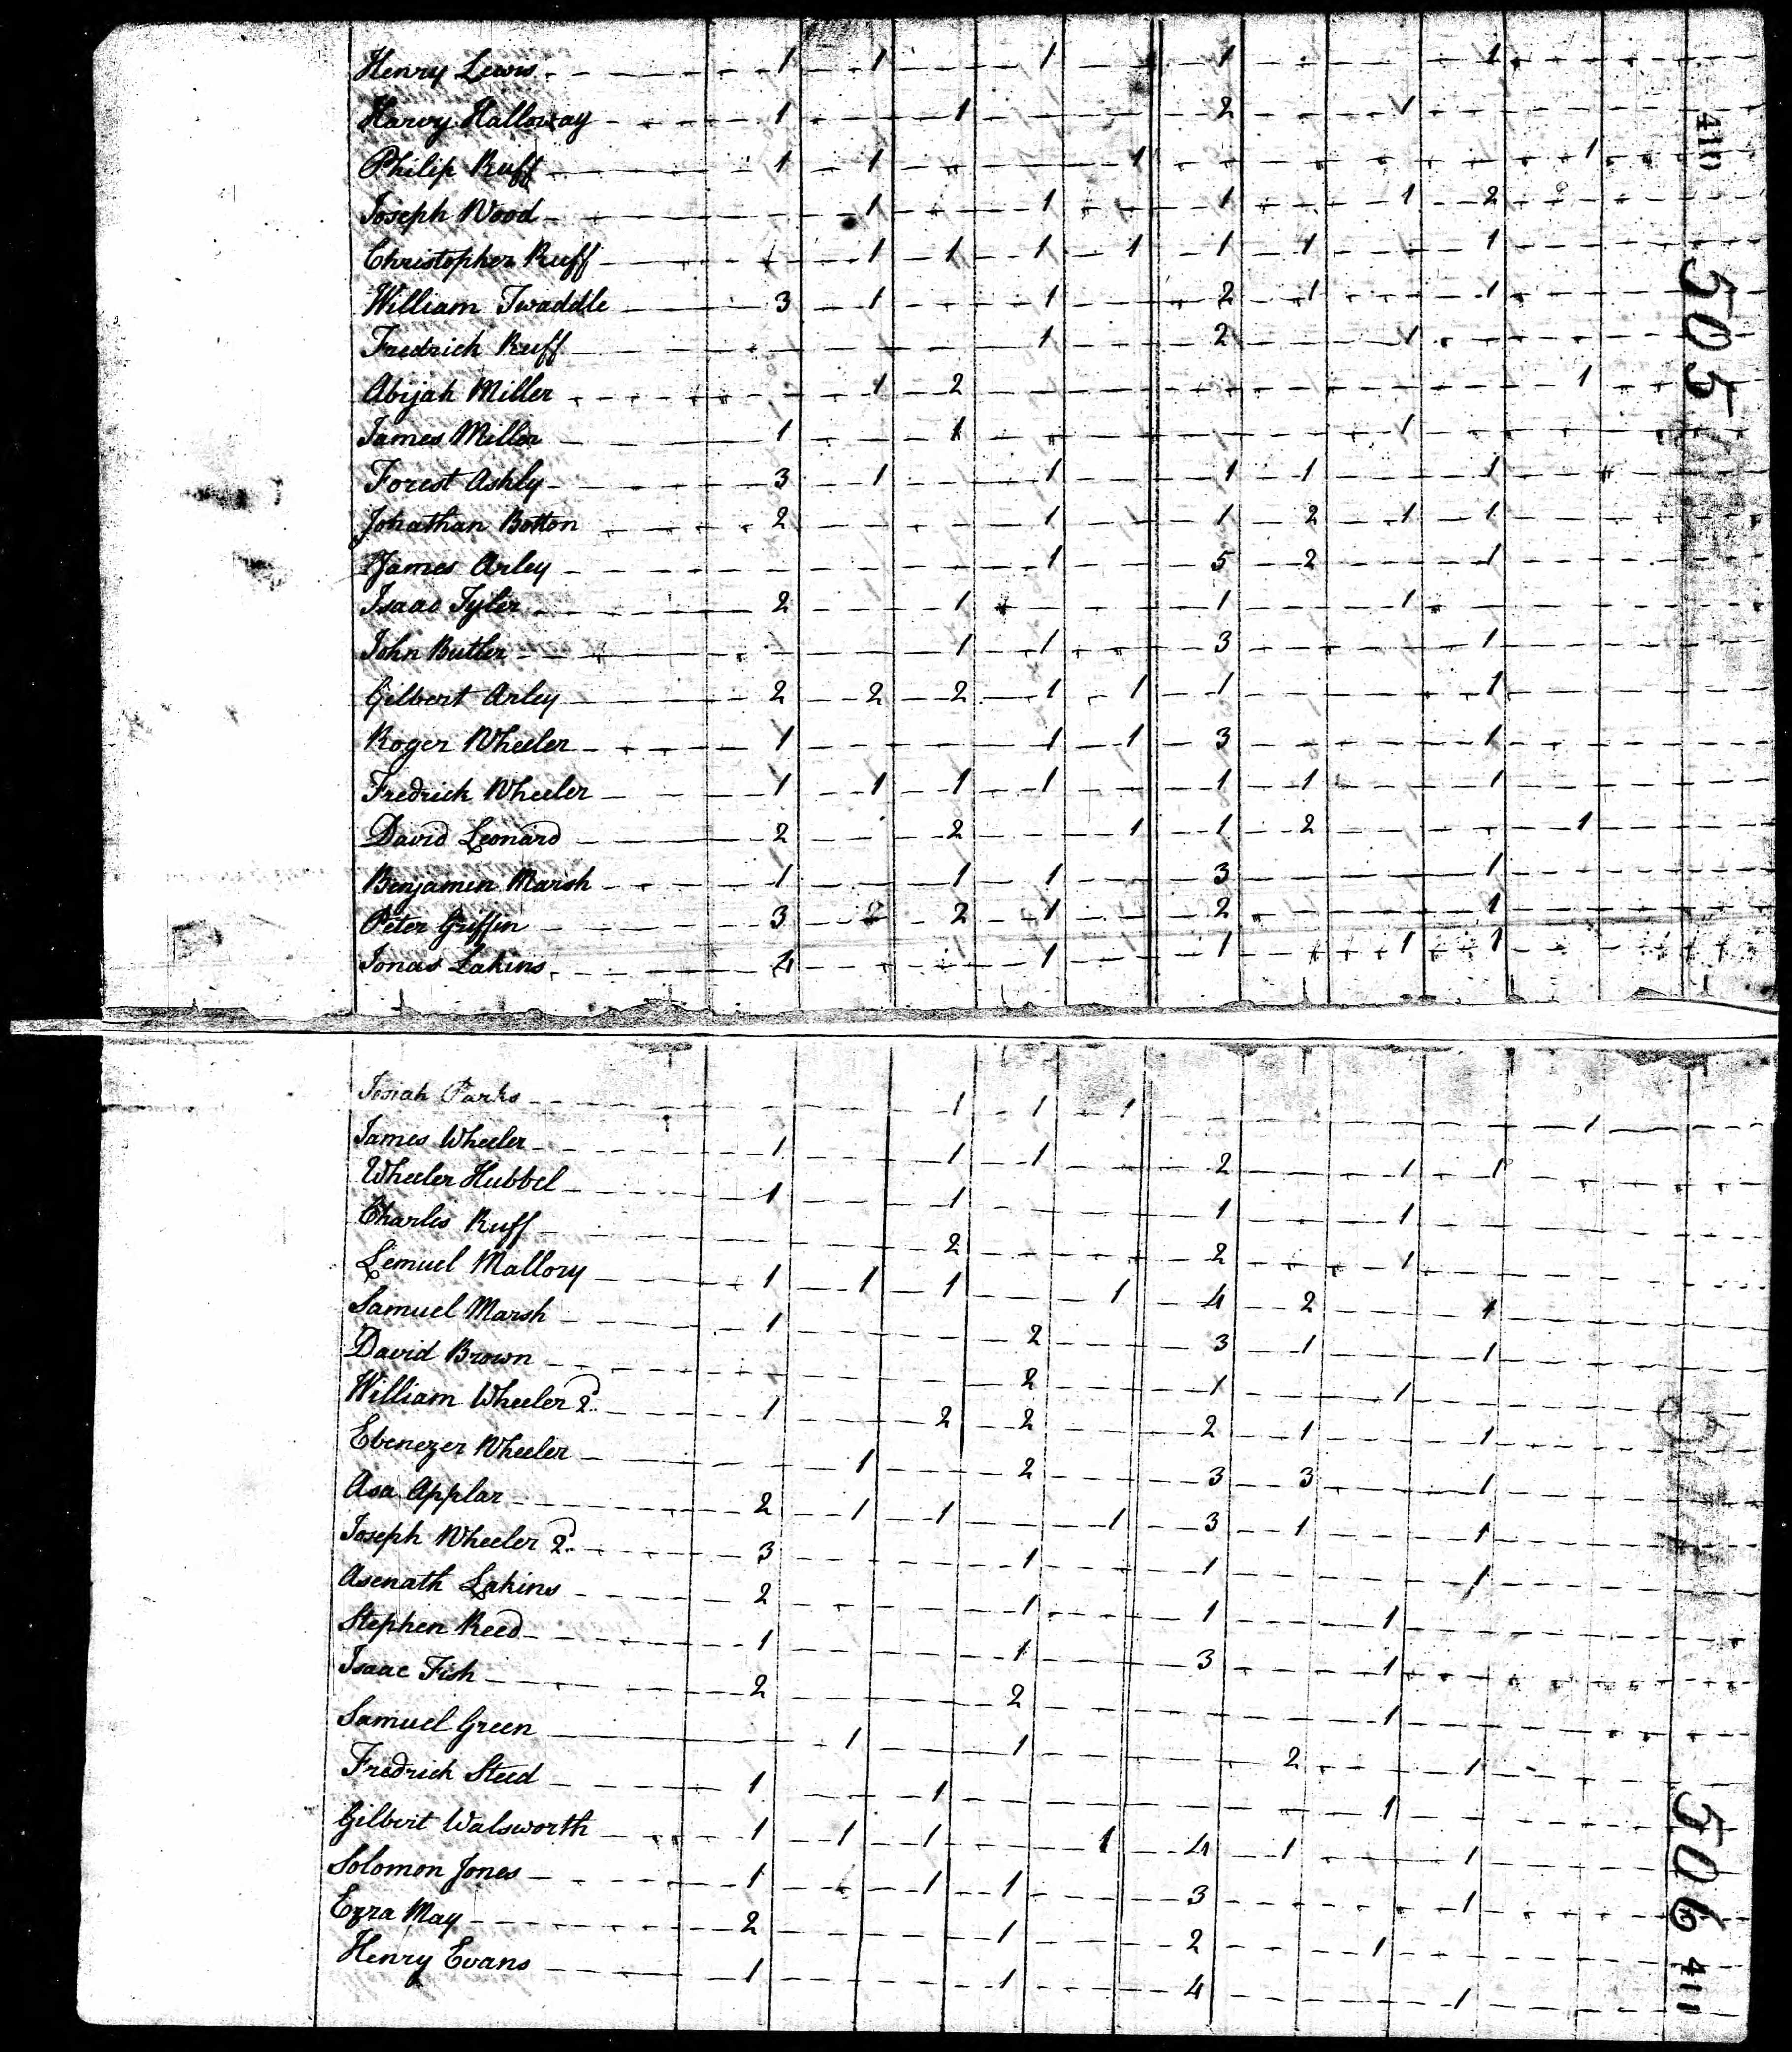 Henry Lewis 1 1 1 1 1
Harvy Halloway 1 1 2 1
Philip Ruff 1 1 1 1
Joseph Wood 1 1 1 1 2
Christopher Ruff 1 1 1 1 1 1 1
William Twaddle 3 1 1 2 1 1
Fredrich Ruff 1 2 1
Abijah Miller 1 2 1
James Miller 1 1 1
Forest Ashly 3 1 1 1 1 1
Johathan Botton 2 1 1 2 1 1
James Arley 1 5 2 1
Isaac Tyler 2 1 1 1
John Butler 1 1 3 1
Gilbert Arley 2 2 2 1 1 1 1
Roger Wheeler 1 1 1 3 1
Fredrich Wheeler 1 1 1 1 1 1 1
David Leonard 2 2 1 1 2 1
Benjamin Marsh 1 1 1 3 1
Peter Griffin 3 2 2 1 2 1
Jonas Lakins 4 1 1 1 1
410
505
Josiah Parks 1 1 1 1
James Wheeler 1 1 1 2 1 1
Wheeler Hubbel 1 1 1 1
Charles Ruff 2 2 1
Lemuel Mallory 1 1 1 1 4 2 1
Samuel Marsh 1 2 3 1 1
David Brown 2 1 1
William Wheeler 2d 1 2 2 2 1 1
Ebenezer Wheeler 1 2 3 3 1
Asa Applar 2 1 1 1 3 1 1
Joseph Wheeler 2d 3 1 1 1
Asenath Lakins 2 1 1 1
Stephen Reed 1 1 3 1
Isaac Fish 2 2 1
Samuel Green 1 1 2 1
Fredrich Steed 1 1 1
Gilbert Walsworth 1 1 1 1 4 1 1
Solomon Jones 1 1 1 3 1
Ezra May 2 1 2 1
Henry Evans 1 1 4 1
506
411